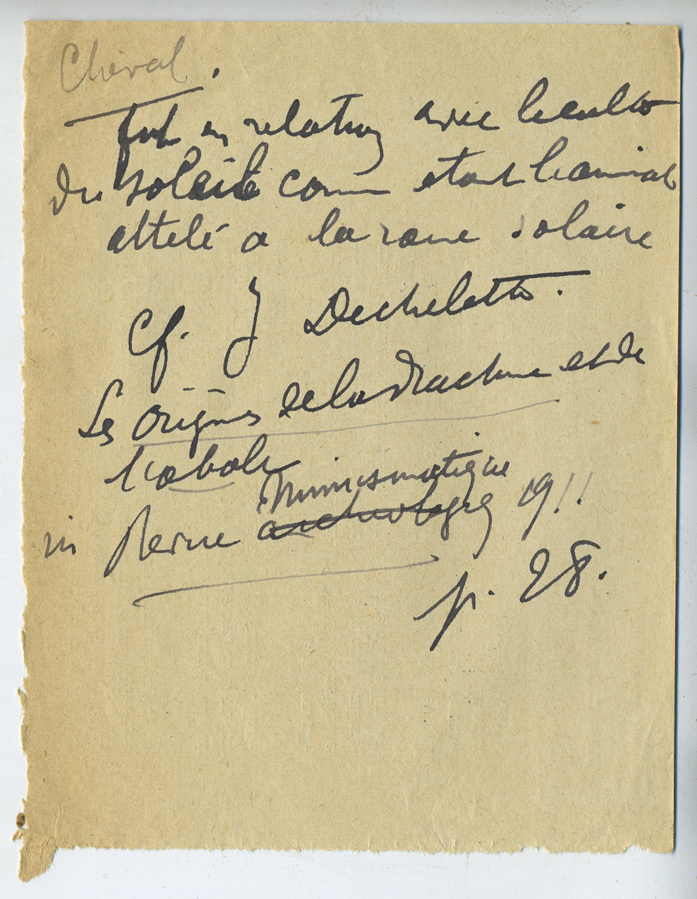 Cheval.
fut en relation avec le culte
du soleil comme etant l'animal
attelé a la roue solaire
Cf. J Dechelette.
Les origines de la drachme et de
l'obole
in Revue archeologique Numismatique 1911
p. 28.